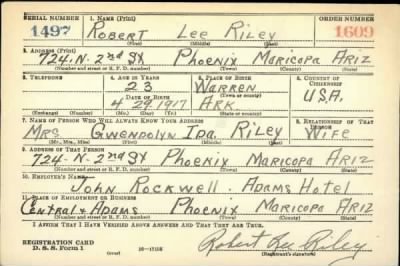 SERIAL NUMBER 1. NAME (Print) ORDER NUMBER
1497 Robert Lee Riley 1609
(First) (Middle) (Last)
2. ADDRESS (Print)
724-N-2nd St Phoenix Maricopa Ariz
(Number and street or R. F. D. number) (Town) (County) (State)
3. TELEPHONE 4. AGE IN YEARS 5. PLACE OF BIRTH 6. COUNTRY OF CITIZENSHIP
23 Warren
DATE OF BIRTH (Town or county) U.S.A.
4 29 1917 Ark.
(Exchange) (Number) (Mo.) (Day) (Yr.) (State or country)
7. NAME OF PERSON WHO WILL ALWAYS KNOW YOUR ADDRESS 8. RELATIONSHIP OF THAT PERSON
Mrs Gwendolyn Ida. Riley Wife
(Mr., Mrs., Miss) (First) (Middle) (Last)
9. ADDRESS OF THAT PERSON
724-N-2nd St Phoenix Maricopa Ariz
(Number and street or R. F. D. number) (Town) (County) (State)
10. EMPLOYER'S NAME
John Rockwell - Adams Hotel
11. PLACE OF EMPLOYMENT OR BUSINESS
Central & Adams Phoenix Maricopa Ariz
(Number and street or R. F. D. number) (Town) (County) (State)
I AFFIRM THAT I HAVE VERIFIED ABOVE ANSWERS AND THAT THEY ARE TRUE.
REGISTRATION CARD
D. S. S. Form 1 (over) 16-17105 Robert Lee Riley
(Registrant's signature)